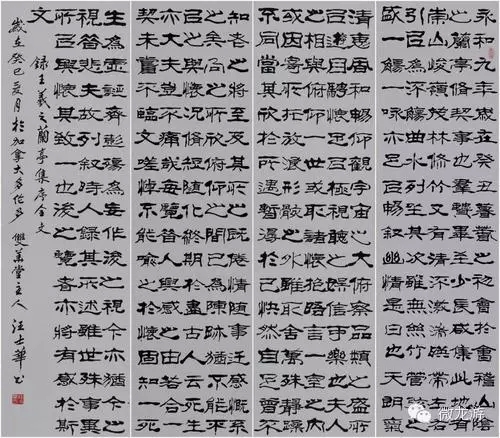 永和九年歲在癸丑暮春之初會於會稽山陰
之蘭亭脩禊事也群賢畢至少長咸集此地有
崇山峻嶺茂林脩竹又有清流激湍映帶左右
引以為流觴曲水列坐其次雖無絲竹管弦之
盛一觴一詠亦足以暢敘幽情是日也天朗氣
清惠風和暢仰觀宇宙之大俯察品類之盛所
以遊目騁懷足以極視聽之娛信可樂也夫人
之相與俯仰一世或取諸懷抱悟言一室之內
或因寄所託放浪形骸之外雖趣舍萬殊靜躁
不同當其欣於所遇暫得於己快然自足不
知老之將至及其所之既倦情隨事遷感慨係
之矣向之所欣俛仰之間已為陳跡猶不能不
以之興懷況脩短隨化終期於盡古人云死生
亦大矣豈不痛哉每覽昔人興感之由若合一
契未嘗不臨文嗟悼不能喻之於懷固知一死
生為虛誕齊彭殤為妄作後之視今亦猶今之
視昔悲夫故列敘時人錄其所述雖世殊事異
所以興懷其致一也後之覽者亦將有感於斯
文
錄王羲之蘭亭集序全文
歲在癸巳夏月於加拿大多倫多雙葉堂主人汪士華書
微龙游